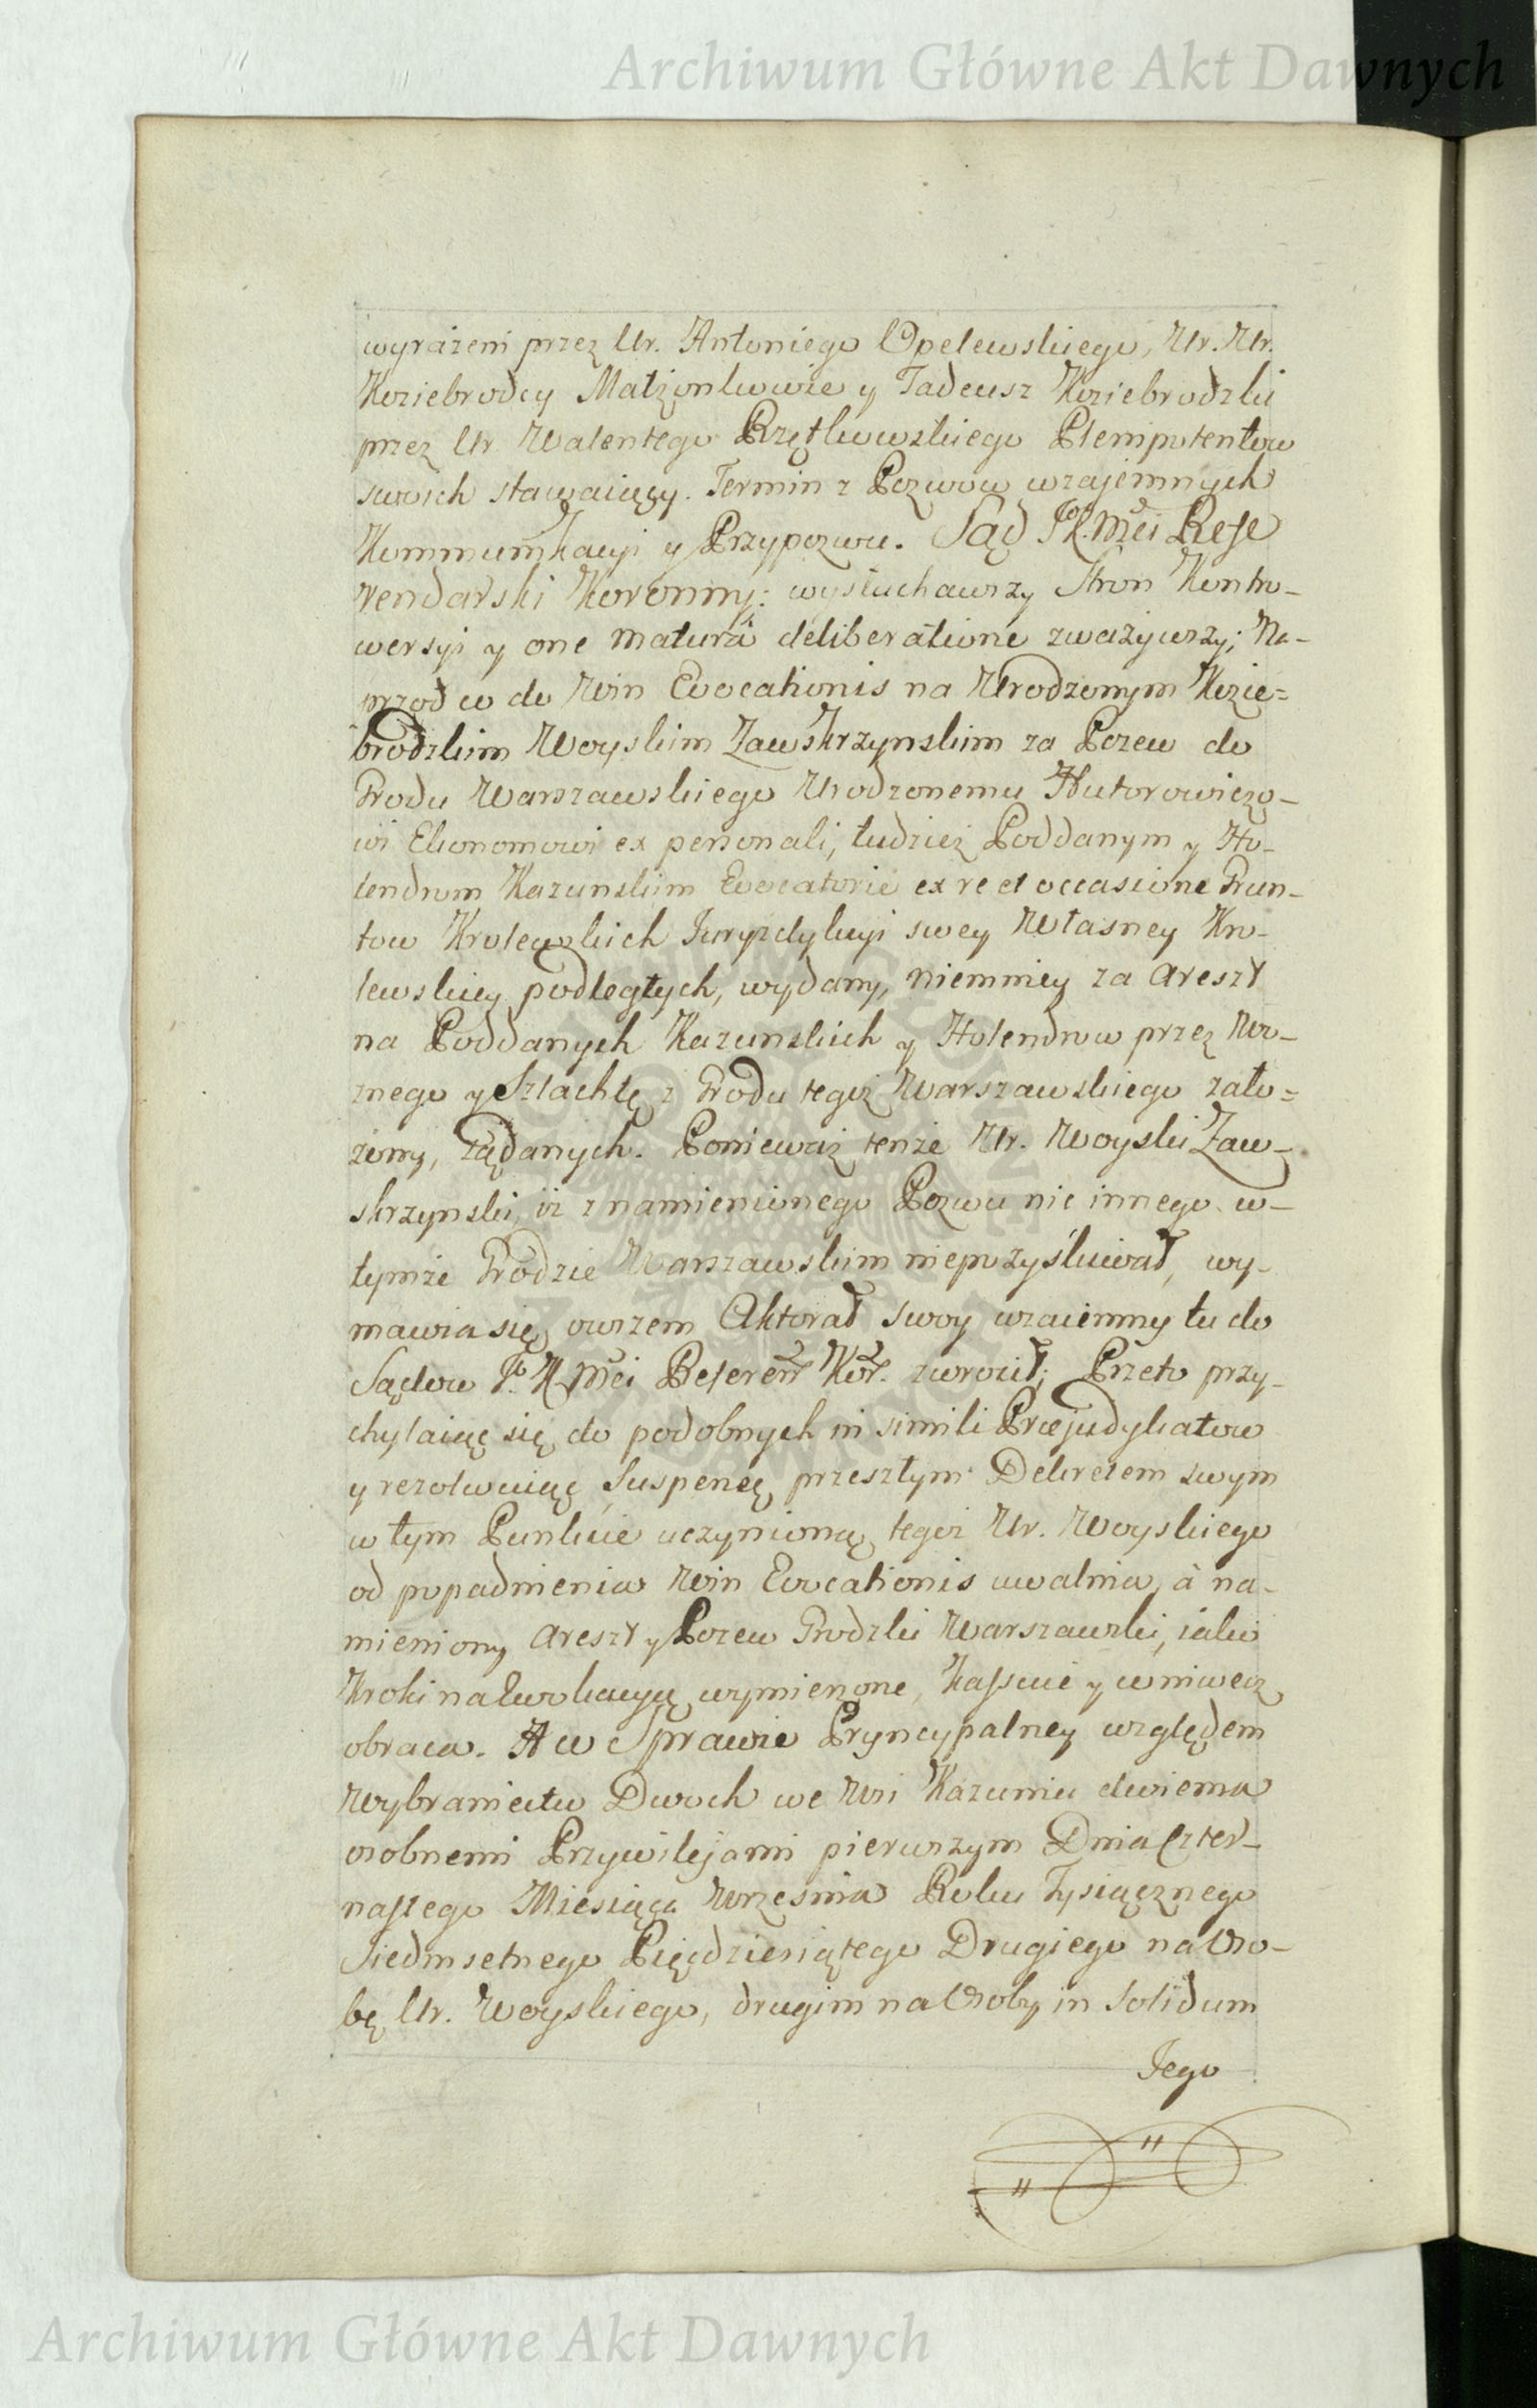 Archiwum Główne Akt Dawnych
wyrażeni przez Ur. Antoniego Opelewskiego, Ur. Ur.
Koziebrodcy Małżonkowie y Tadeusz Koziebrodzki
przez Ur. Walentego Rzętkowskiego Plenipotentow
swoich stawaiący. Termin z Pozwow wzajemnych
Kommunikacyi y Przypozwu. Sąd J. K. Mci Refe
rendarski Koronny: wysłuchawszy Stron Kontro-
wersyi y one matura deliberatione zważywszy; Na-
przod co do Win Evocationis na Urodzonym Kozie=
brodzkim Woyskim Zawskrzynskim za Pozew do
Grodu Warszawskiego Urodzonemu Hutorowiczo-
wi Ekonomowi ex personali, tudzież Poddanym y Ho-
lendrom Kazunskim Evocatorie ex re et occasione Grun-
tow Krolewskich Juryzdykcyi swey Własney Kro-
lewskiey podległych, wydany, niemniey za Areszt
na Poddanych Kazunskich y Holendrow przez Wo-
znego y Szlachtę z Grodu tegoż Warszawskiego zało=
żony, żądanych. Ponieważ tenże Ur. Woyski Zaw-
skrzynski, iż znamienionego Pozwu nic innego w-
tymże Grodzie Warszawskim niepozyskiwał, wy-
mawia się, owszem Aktorat swoy wzaiemny tu do
Sądow J. K. Mci Referen̄ Kor. zwrocił; Przeto przy-
chylaiąc się do podobnych in simili Præjudykatow
y rezolwuiąc Suspensę przeszłym Dekretem swym
w tym Punkcie uczynioną tegoż Ur. Woyskiego
od popadnienia Win Evocationis uwalnia, à na-
mieniony Areszt y Pozew Grodzki Warszawski, iako
Kroki na Ewokacyą wymierzone, kassuie y wniwecz
obraca. A w Sprawie Pryncypalney względem
Wybraniectw Dwoch we Wsi Kazuniu dwiema
osobnemi Przywilejami pierwszym Dnia Czter-
nastego Miesiąca Wrzesnia Roku Tysiącznego
Siedmsetnego Pięcdziesiątego Drugiego na Oso-
bę Ur. Woyskiego, drugim na Osoby in Solidum
Jego
Archiwum Główne Akt Dawnych